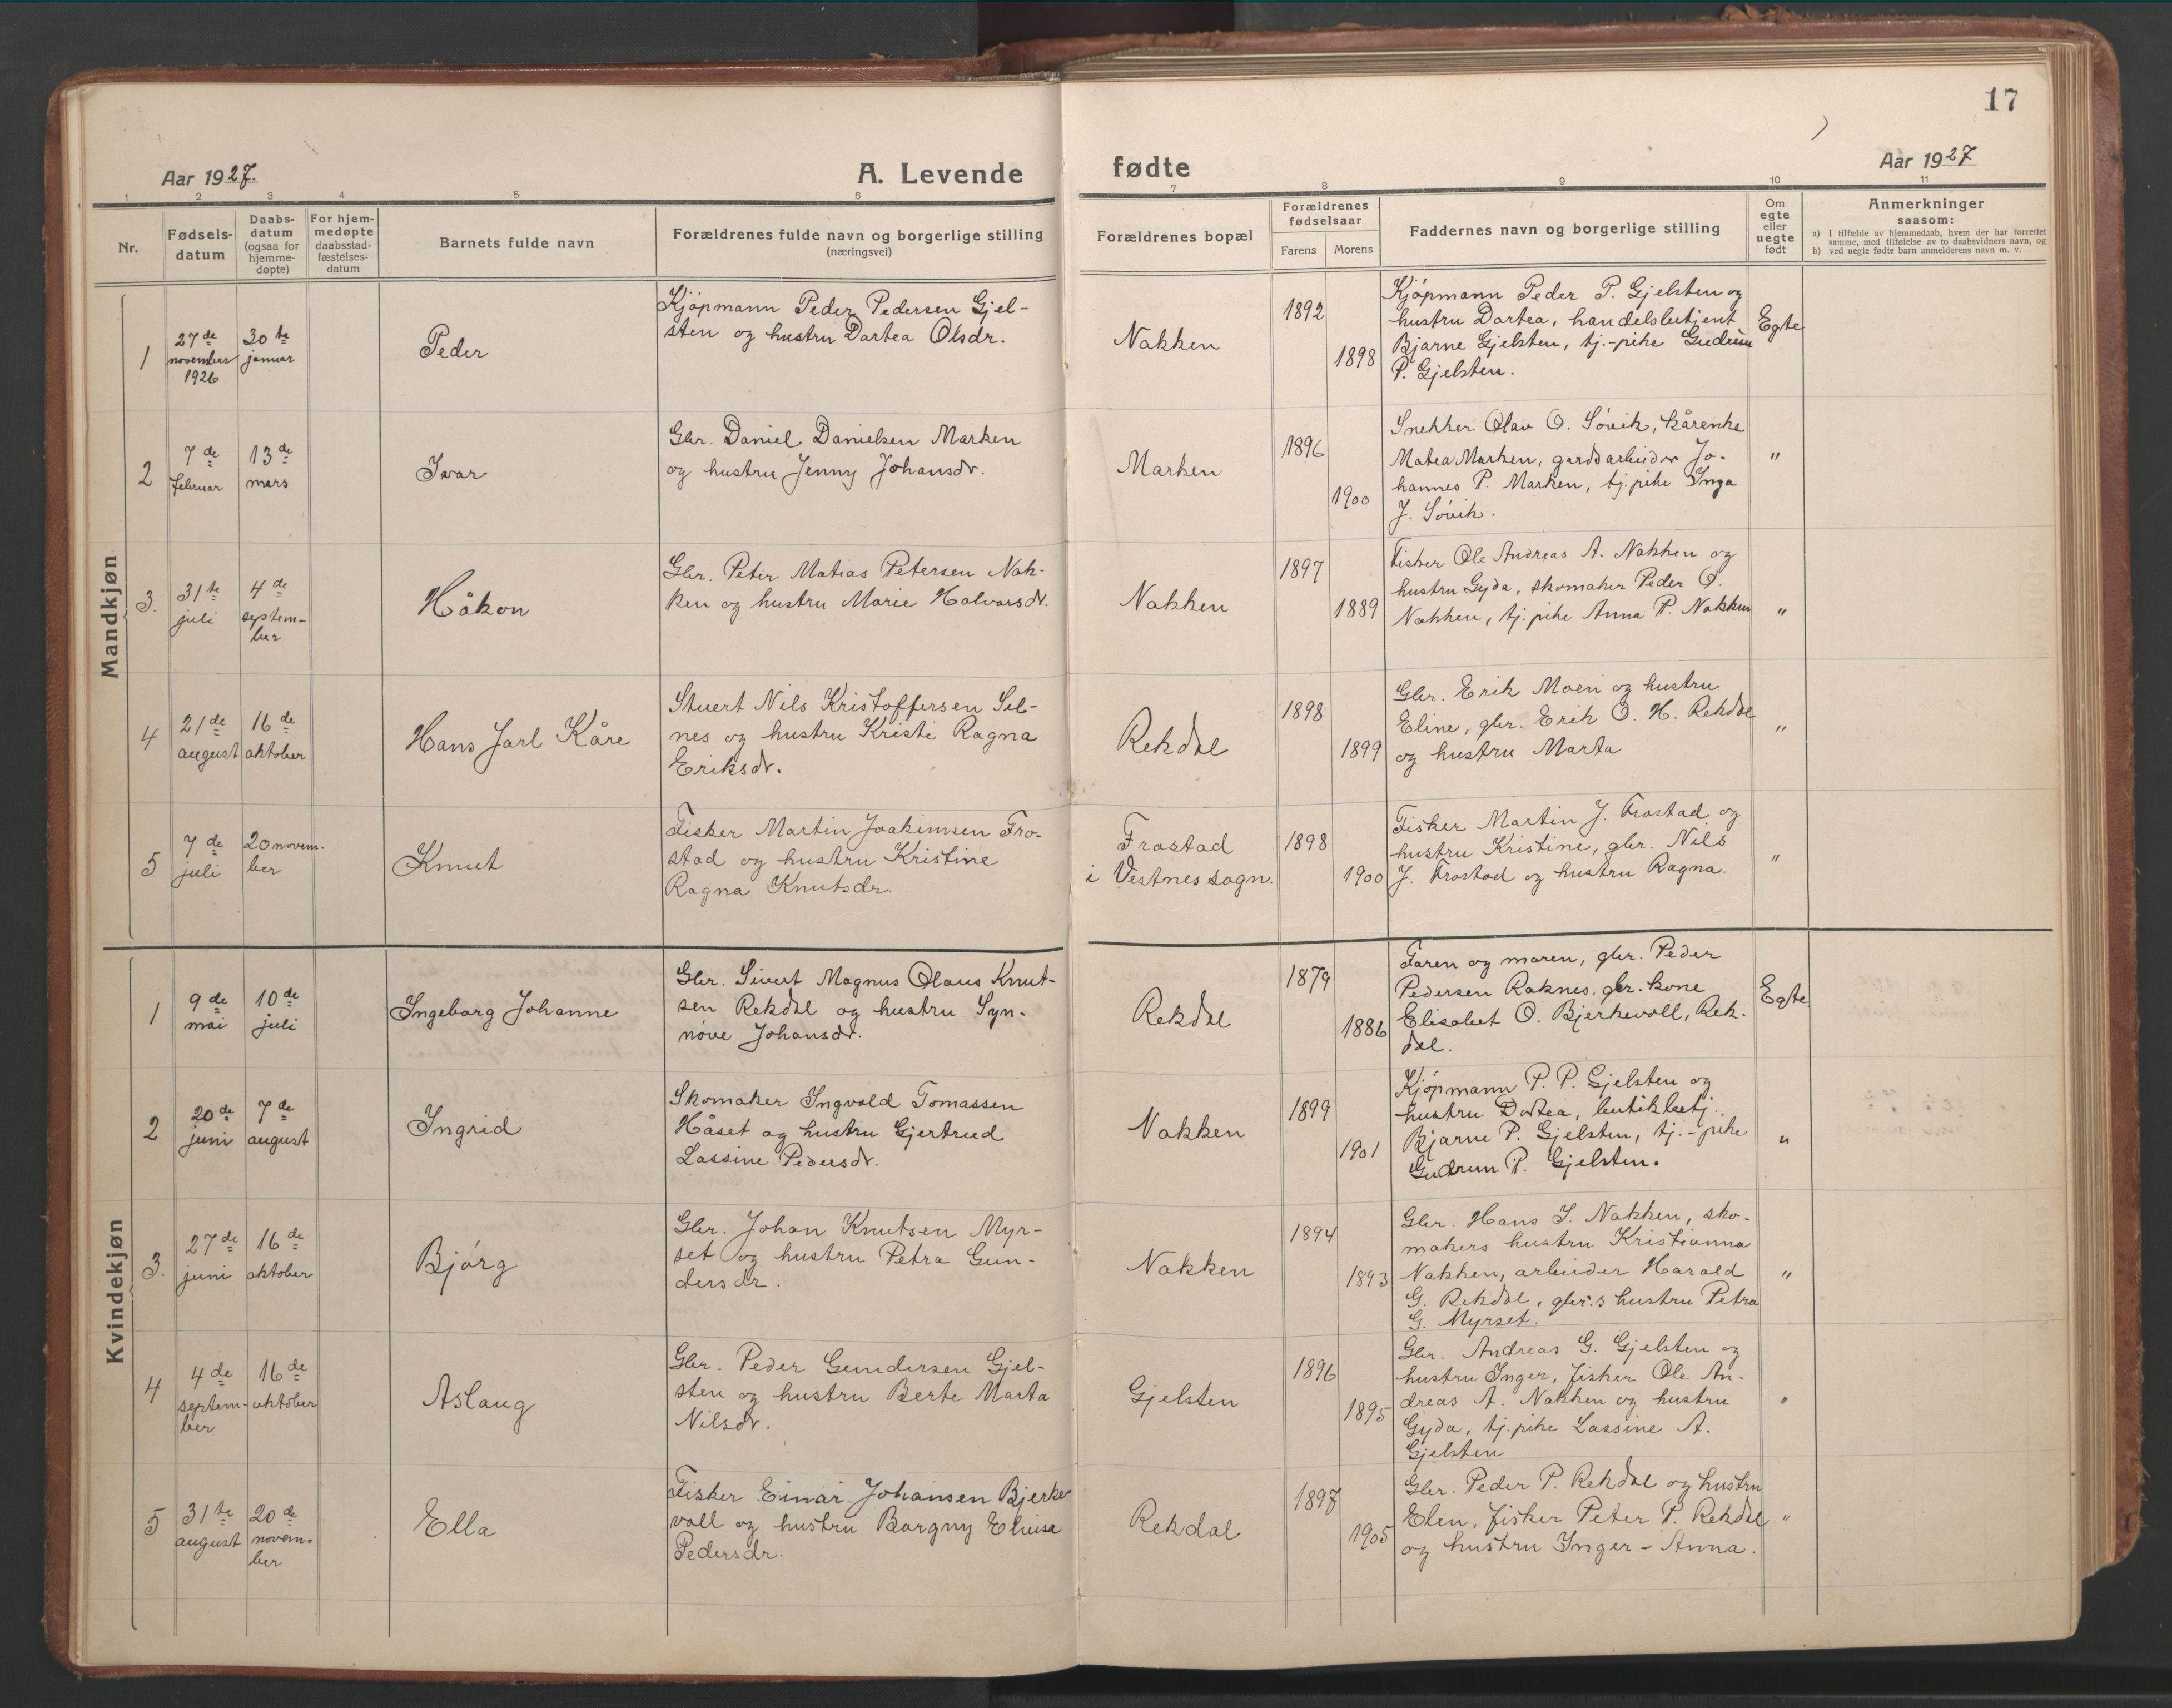 17
Aar 1927.
A. Levende
fødte
Aar 1927
1 2 3 4 5 6 7 8 9 10 11
Nr.
Fødsels-
datum
Daabs-
datum
(ogsaa for
hjemme-
døpte)
For hjem-
medøpte
daabsstad-
fæstelses-
datum
Barnets fulde navn
Forældrenes fulde navn og borgerlige stilling
(næringsvei)
Forældrenes bopæl
Forældrenes
fødselsaar
Farens
Morens
Faddernes navn og borgerlige stilling
Om
egte
eller
uegte
født
Anmerkninger
saasom:
a) I tilfælde av hjemmedaab, hvem der har forrettet
samme, med tilføielse av to daabsvidners navn, og
b) ved uegte fødte barn anmelderens navn m. v.
Mandkjøn
1
27de
november
1926
30te
januar
Peder
Kjøpmann Peder Pedersen Gjel-
sten og hustru Dortea Olsdr.
Nakken
1892
1898
Kjøpmann Peder P. Gjelsten og
hustru Dortea, handelsbetjent
Bjarne Gjelsten, tj.-pike Gudrun
P. Gjelsten.
Egte
2
7de
februar
13de
mars
Ivar
Gbr. Daniel Danielsen Marken
og hustru Jenny Johansdr.
Marken
1896
1900
Snekker Olav O. Søvik, kårenke
Matea Marken, gardsarbeider Jo-
hannes P. Marken, tj.pike Inga
J. Søvik.
"
3.
31te
juli
4de
septem-
ber
Håkon
Gbr. Peter Matias Petersen Nak-
ken og hustru Marie Halvorsdr.
Nakken
1897
1889
Fisker Ole Andreas A. Nakken og
hustru Gyda, skomaker Peder O.
Nakken, tj.pike Anna P. Nakken
"
4
21de
august
16de
oktober
Hans Jarl Kåre
Stuert Nils Kristoffersen Sel-
nes og hustru Kristi Ragna
Eriksdr.
Rekdal
1898
1899
Gbr. Erik Moen og hustru
Eline, gbr. Erik O. H. Rekdal
og hustru Marta
"
5
7de
juli
20 novem-
ber
Knut
Fisker Martin Joakimsen Fro-
stad og hustru Kristine
Ragna Knutsdr.
Frostad
i Vestnes sogn.
1898
1900
Fisker Martin J. Frostad og
hustru Kristine, gbr. Nils
J. Frostad og hustru Ragna.
"
Kvindekjøn
1
9de
mai
10de
juli
Ingeborg Johanne
Gbr. Sivert Magnus Olaus Knut-
sen Rekdal og hustru Syn-
nøve Johansdr.
Rekdal
1879
1886
Faren og moren, gbr. Peder
Pedersen Raknes, gbr. kone
Elisabet O. Bjerkevoll, Rek-
dal.
Egte
2
20de
juni
7de
august
Ingrid
Skomaker Ingvald Tomassen
Håset og hustru Gjertrud
Lassine Pedersdr.
Nakken
1899
1901
Kjøpmann P. P. Gjelsten og
hustru Dortea, butikbetj.
Bjarne P. Gjelsten, tj.-pike
Gudrun P. Gjelsten.
"
3.
27de
juni
16de
oktober
Bjørg
Gbr. Johan Knutsen Myr-
set og hustru Petra Gun-
dersdr.
Nakken
1894
1893
Gbr. Hans I. Nakken, sko-
makers hustru Kristianna
Nakken, arbeider Harald
G. Rekdal, gbr.s hustru Petra
G. Myrset.
"
4
4de
septem-
ber
16de
oktober
Aslaug
Gbr. Peder Gundersen Gjel-
sten og hustru Berte Marta
Nilsdr.
Gjelsten
1896
1895
Gbr. Andreas G. Gjelsten og
hustru Inger, fisker Ole An-
dreas A. Nakken og hustru
Gyda, tj.pike Lassine A.
Gjelsten
"
5
31te
august
20de
novem-
ber
Ella
Fisker Einar Johansen Bjerke
voll og hustru Borgny Elvisa
Pedersdr.
Rekdal
1897
1905
Gbr. Peder P. Rekdal og hustru
Elen, fisker Peter P. Rekdal
og hustru Inger-Anna.
"